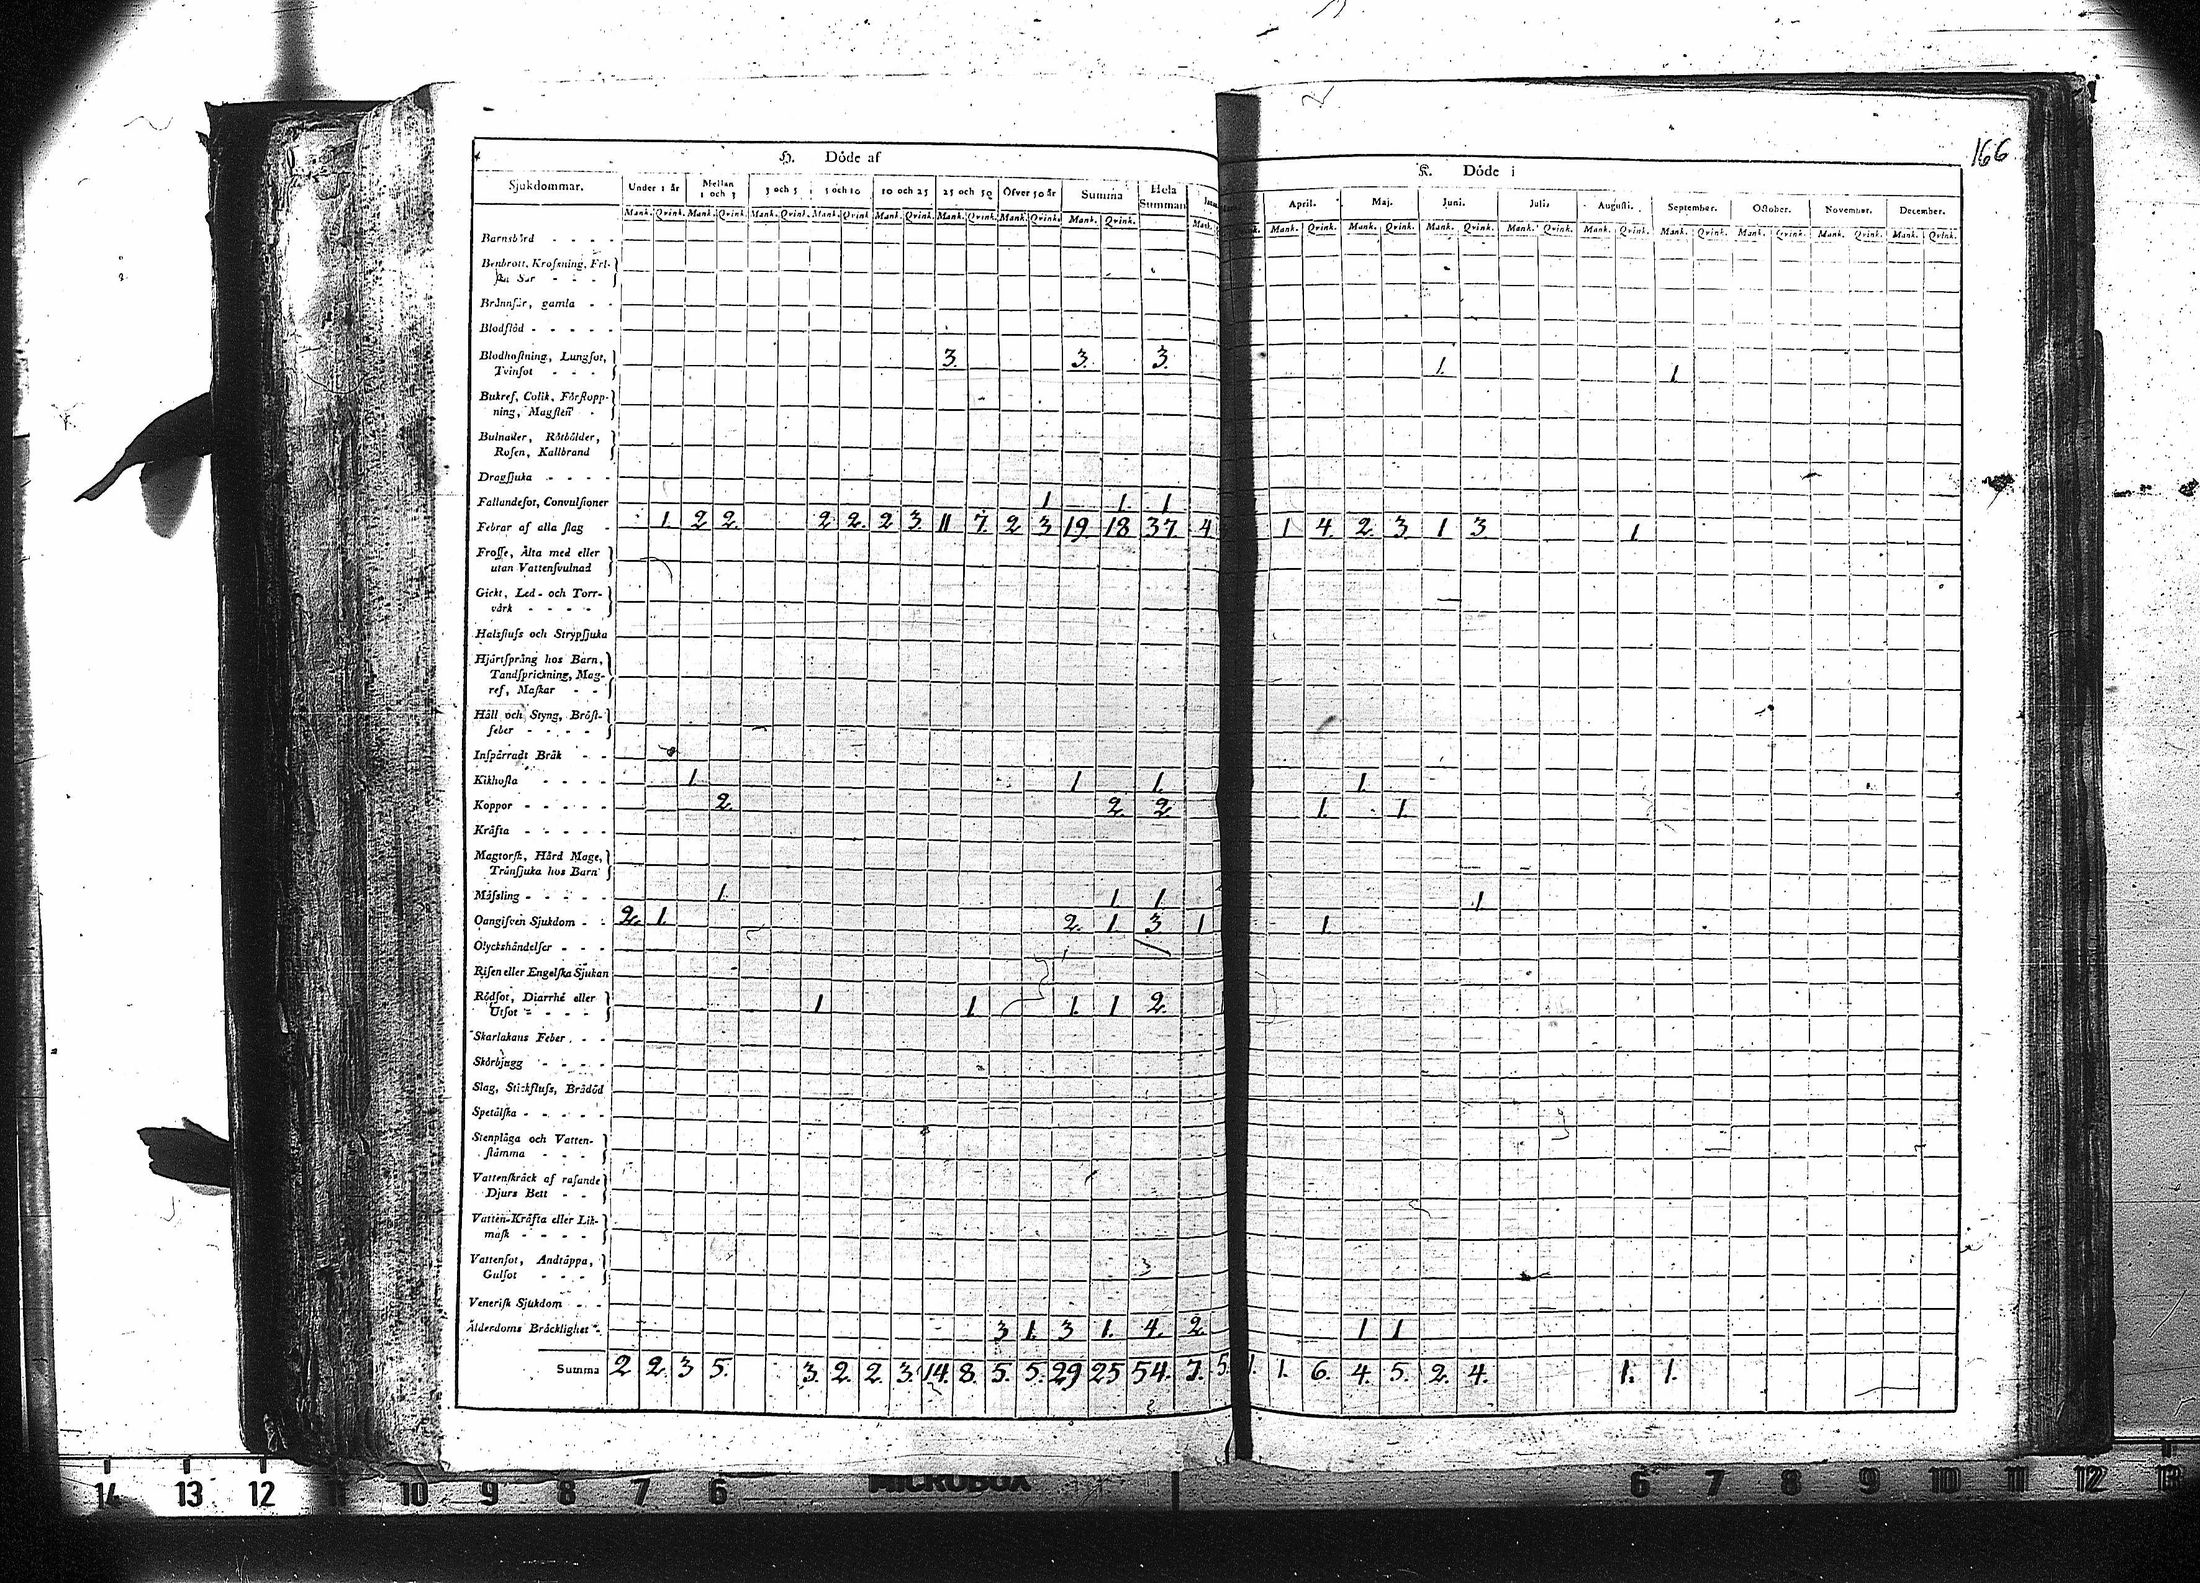 166
H. Döde af
K. Döde i
Sjukdommar. Under 1 år Mellan 1 och 3 3 och 5 5 och 10 10 och 25 25 och 50 Öfver 50 år Summa Hela Summan
April. Maj. Juni. Julii. Augusti. September. October. November. December.
Mank. Qvink. Mank. Qvink. Mank. Qvink. Mank. Qvink. Mank. Qvink. Mank. Qvink. Mank. Qvink. Mank. Qvink. Mank.
Mank. Qvink. Mank. Qvink. Mank. Qvink. Mank. Qvink. Mank. Qvink. Mank. Qvink. Mank. Qvink. Mank. Qvink. Mank. Qvink.
Barnsbörd - - - -
Benbrott, Krosning,
Sår - - -
Brännsår, gamla - -
Blodflöd - - - - -
Blodhostning, Lungsot,
Tvinsot - - - 3. 3. 3. 1. 1
Bukref, Colik, Förstopp-
ning, Magsten -
Bulnader, Rötbölder,
Rosen, Kallbrand
Dragsjuka - - - -
Fallandesot, Convulsioner 1 1. 1
Febrar af alla slag - 1. 2 2. 2. 2. 2 3. 11 7. 2 3 19. 18 37. 4 1 4. 2. 3. 1 3. 1
Frosse, Älta med eller
utan Vattensvulnad
Gickt, Led- och Torr-
värk - - - -
Halsfluss och Strypsjuka
Hjärtsprång hos Barn,
Tandsprickning, Mag-
ref, Maskar - -
Håll och Styng, Bröst-
feber - - - -
Inspärradt Bråk - -
Kikhosta - - - - 1 1 1. 1
Koppor - - - - - 2. 2. 2. 1. 1.
Kräfta - - - - -
Magtorsk, Hård Mage,
Tränsjuka hos Barn
Mässling - - - - - 1. 1 1. 1
Oangifven Sjukdom - - 2. 1. 2. 1 3 1 1
Olyckshändelser - - -
Risen eller Engelska Sjukan
Rödsot, Diarrhé eller
Utsot - - - - 1 1 1. 1 2.
Skarlakans Feber - -
Skörbjugg - - - -
Slag, Stickfluss, Brådöd
Spetälska - - - - -
Stenplåga och Vatten-
stämma - - -
Vattenskräck af rasande
Djurs Bett - -
Vatten-Kräfta eller Lik-
mask - - - -
Vattensot, Andtäppa,
Gulsot - - -
Venerisk Sjukdom - -
Ålderdoms Bräcklighet - 3 1. 3 1. 4. 2. 1 1
Summa 2 2. 3 5. 3. 2. 2. 3. 14. 8. 5. 5. 29 25 54. 7. 5. 1. 1. 6. 4. 5. 2. 4. 1. 1.
14 13 12 11 10 9 8 7 6 MICROBOX 6 7 8 9 10 11 12 13